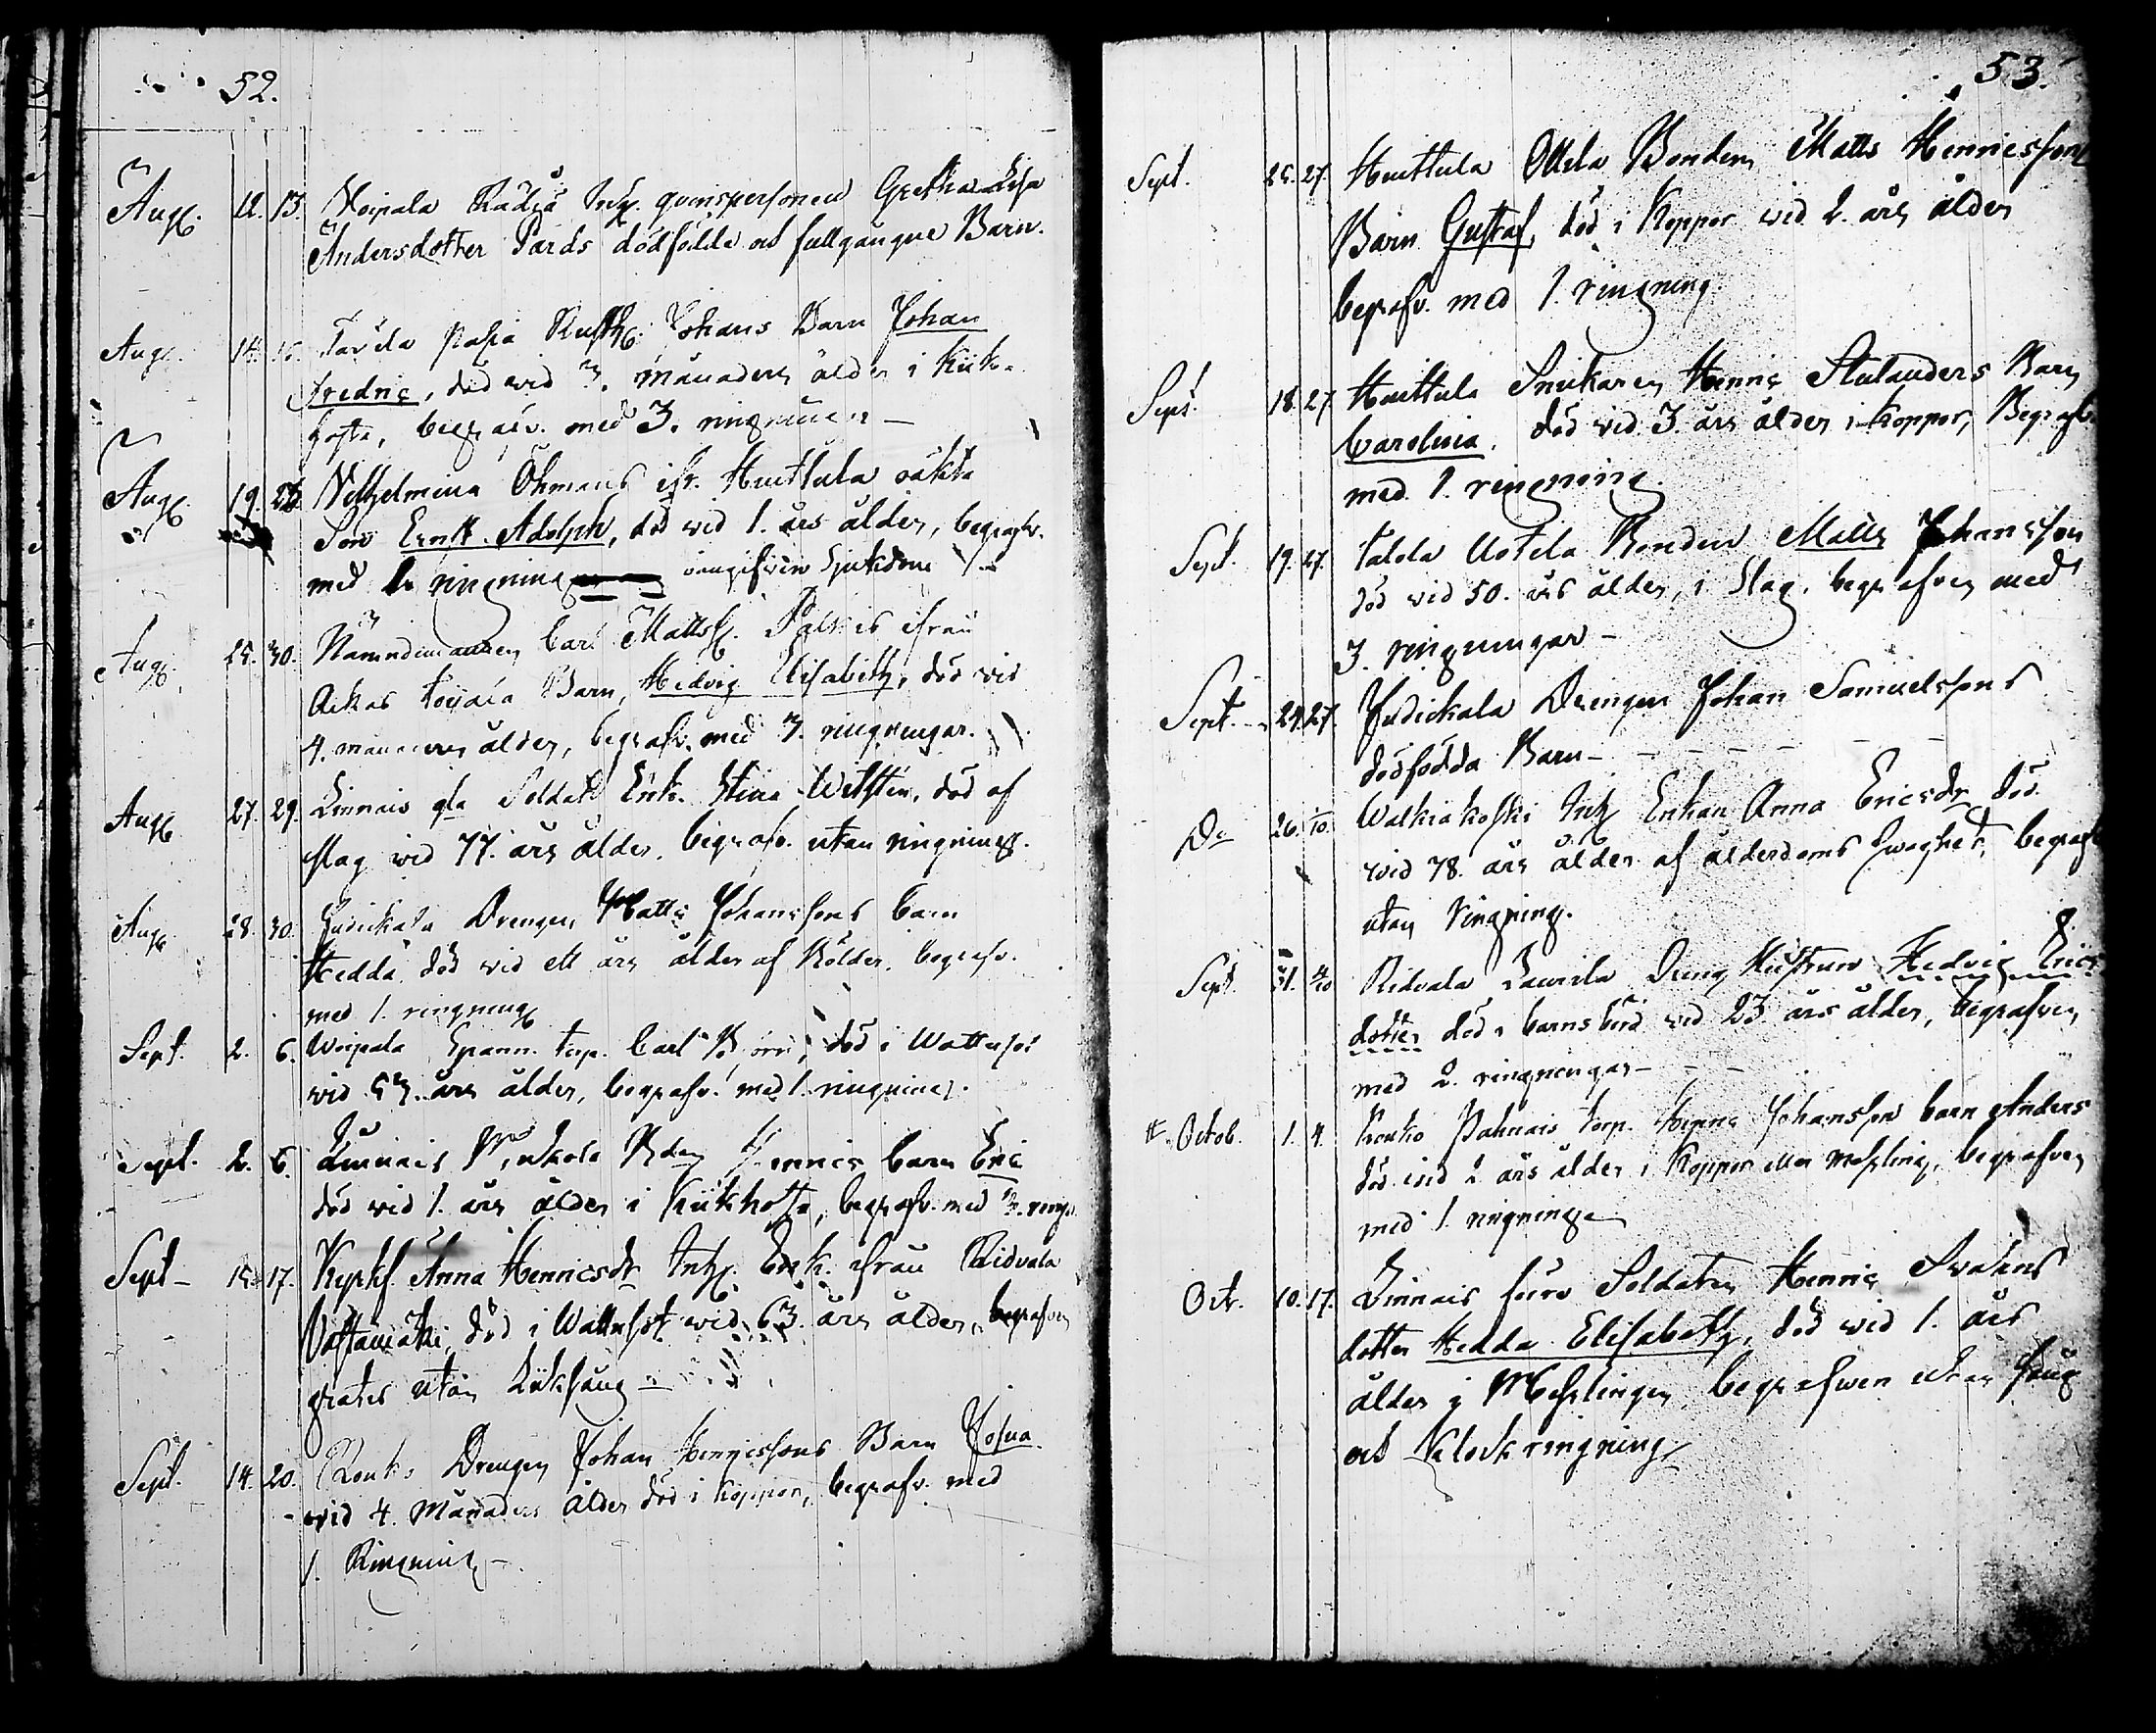 52.
Aug. 12. 13. Woipala Rådiä Inh. qvinspersonen Gretha Lisa
Andersdotter Pards dödfödda och fullgångne Barn.
Aug. 14. Johans Barn Johan
Fredric, död wid 3. månaders ålder i Kik-
hosta, begrafv. med 3. ringningar
Aug. 19. Wilhelmina Öhmans ifr. Huittula oäkta
Son Ernst Adolph, död wid 1. års ålder, begrafv.
med ringning oangifven Sjukdom
Aug. 25. 30. Nämndemannen Carl Mattss. ifrån
Barn, Hedvig Elisabeth, död vid
4. månaders ålder, begrafv. med 3. ringningar.
Aug. 27. 29. Linnais gla Soldats Enk. Stina Witsten, död af
slag wid 77. års ålder, begrafv. utan ringning.
Aug. 28. 30. Judickala Drengen Matts Johanssons barn
Hedda död wid ett års ålder af Bölder, begrafv.
med 1. ringning
Sept. 2. 6. Woipala Spann. torp. Carl död i Wattusot
wid 53. års ålder, begrafv. med 1. ringning.
Sept. 2. 6. Linnais Bden Hennics barn Eric
död wid 1. års ålder i Kikhosta, begrafv. med 3. ringn.
Sept 15. 17. Kyrkf. Anna Henricsdr Inh. Enk. ifrån Ridvala
död i Wattusot wid 63. års ålder, begrafven
gratis utan Liksång
Sept. 14. 20. Rouko Drengen Johan Henricssons Barn Josua
wid 4. Månaders ålder död i koppor, begrafv. med
1. Ringning
53.
Sept. 25. 27. Huittula Ottila Bonden Matts Henricssons
Barn Gustaf, död i Koppor wid 2. års ålder
begrafv. med 1. ringning
Sept. 18. 27 Huittula Snickaren Henric Stulanders Barn
Carolina. död vid 3. års ålder i Koppor, Begrafv.
med 1. ringning.
Sept. 19. 27. Uotila Bonden Matts Johansson
död wid 50. års ålder, i Slag, begrafven med
3. ringningar
Sept. 24. 27. Judickala Drengen Johan Samuelssons
dödfödda Barn
Do 26. 1/10. Walkiakoski Inh Enkan Anna Ericsdr död
wid 78. års ålder af ålderdoms swaghet, begrafv
utan Ringning.
Sept. 4/10 Ridvala Laurila Dreng Hustrun Hedvig Erics
dotter död i barnsbörd wid 23 års ålder, begrafven
med 2. ringningar
Octob. 1. 4. Rouko Pahnais torp. Henric Johansson barn Anders
död wid 2 års ålder i Koppor eller Messling, begrafven
med 1. ringning
Oct. 10. 17. Linnais Furo Soldaten Henric Svahns
dotter Hedda Elisabeth, död wid 1. års
ålder i Messlingen begrafven utan sång
och Klockringning